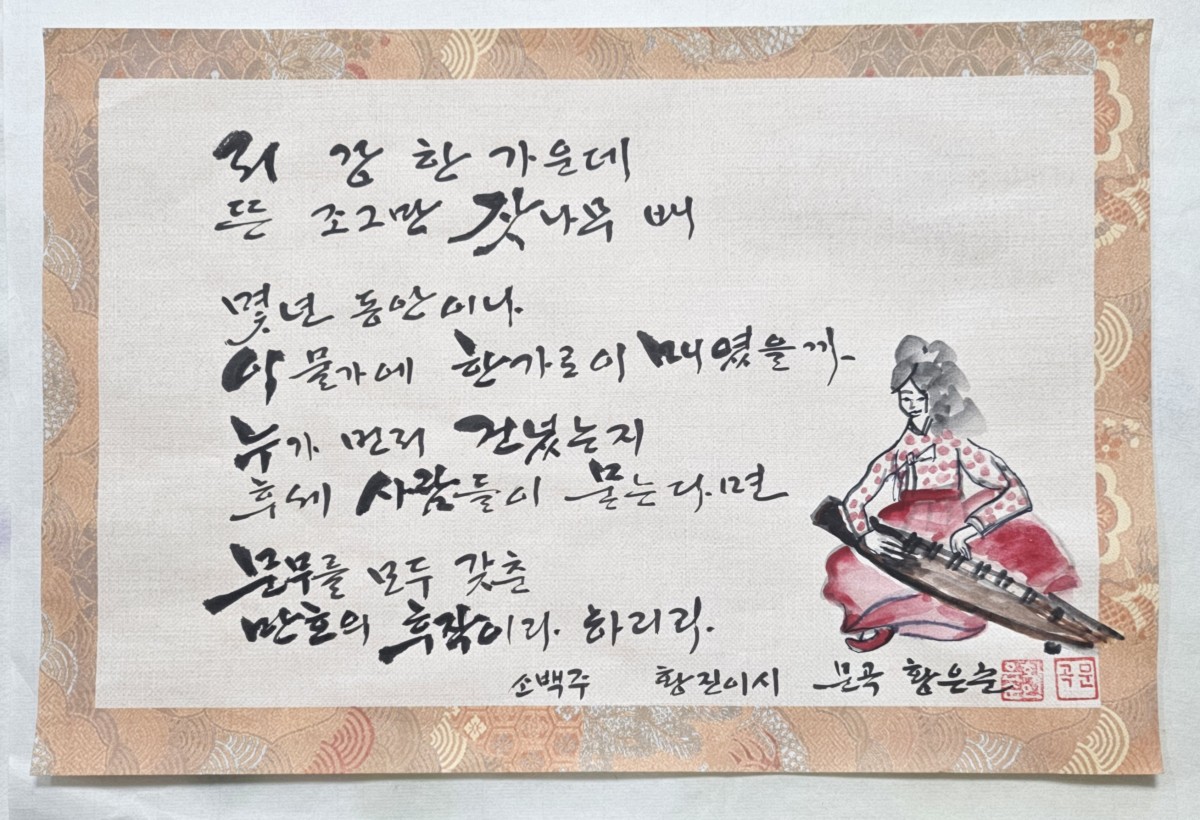 저 강 한 가운데
뜬 조그만 잣나무 배
몇년 동안이나
이 물가에 한가로이 매였을까
누가 먼저 건넜는지
후세 사람들이 묻는다면
문무를 모두 갖춘
만호의 후작이라 하리라.
소백주 황진이시 문곡 황은순
문곡